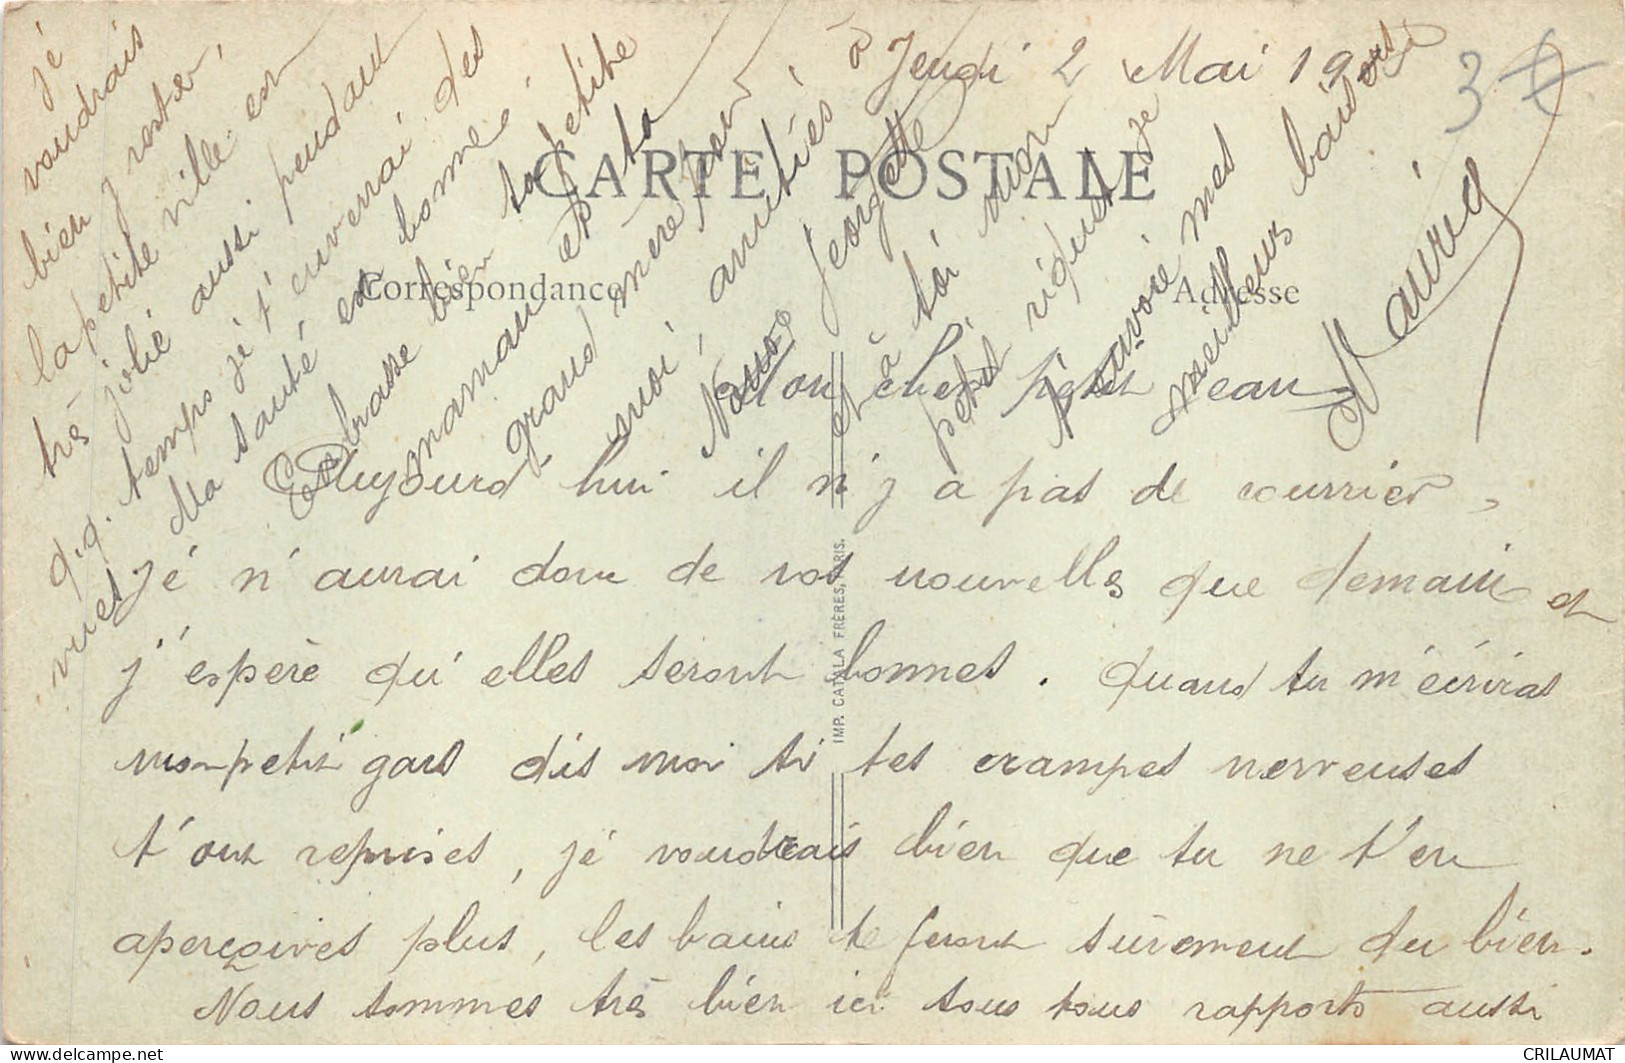 Jeudi 2 Mai 19
3 €
CARTE POSTALE
Correspondance
Adresse
Mon cher petit Jean,
Aujourd'hui il n'y a pas de courrier,
jé n'aurai donc de vos nouvelles que demain et
j'espère qu'elles seront bonnes. Quand tu m'écriras
mon petit gars dis moi si tes crampes nerveuses
t'ont reprises, jé voudrais bien que tu ne t'en
aperçoives plus, les bains te feront sûrement du bien.
Nous sommes très bien ici sous tous rapports aussi
jé
voudrais
bien y rester,
la petite ville en
très jolie aussi pendant
q.q. temps jé t'enverrai des
vues
Ma santé est bonne.
Embrasse bien ta petite
maman et ta
grand mère pour
moi, amitiés à
Nous Georgette
et à toi mon
petit je
t'envoie mes
meilleurs baisers
Maurice
IMP. CATALA FRÈRES, PARIS.
CRILAUMAT